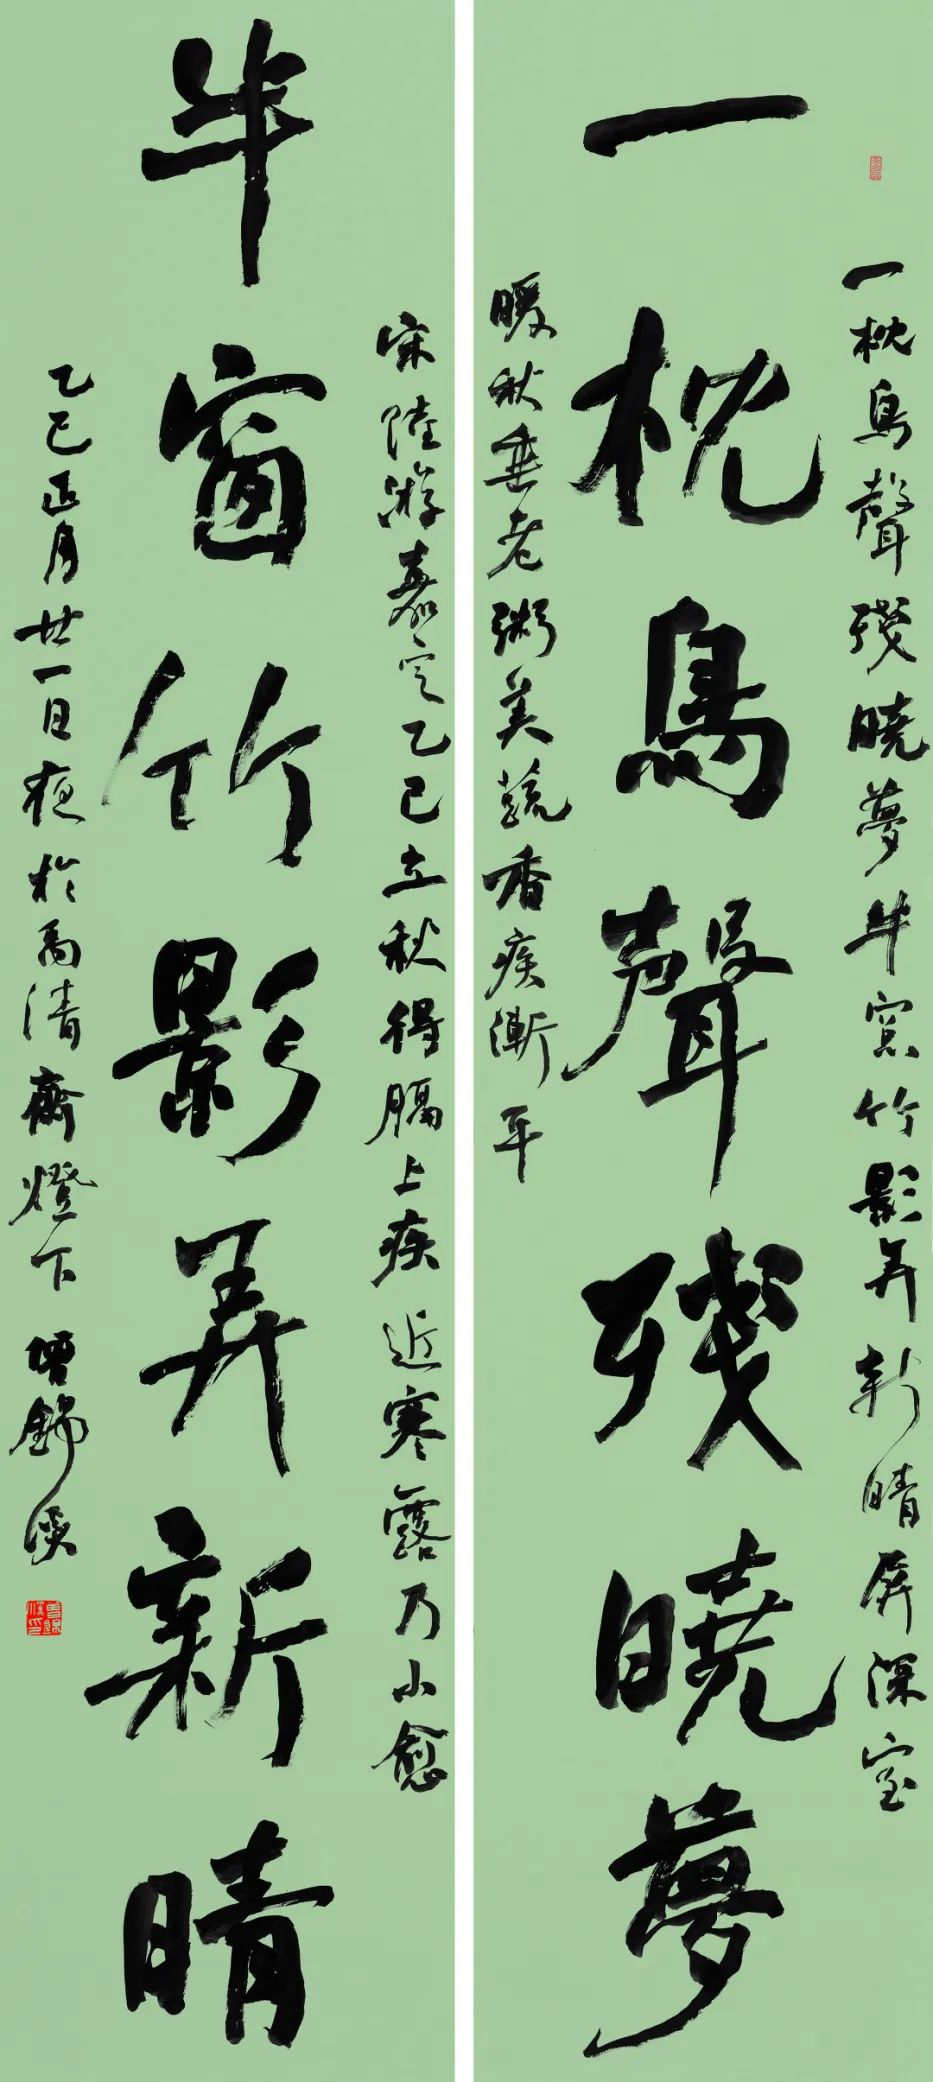 一枕鳥聲殘曉夢
一枕鳥聲殘曉夢半窓竹影弄新晴屏深室
暖秋垂老粥美蔬香疾漸平
半窗竹影弄新晴
宋陸游嘉定乙巳立秋得膈上疾近寒露乃小愈
乙巳正月廿一日夜於禹清齋燈下曾錦溪